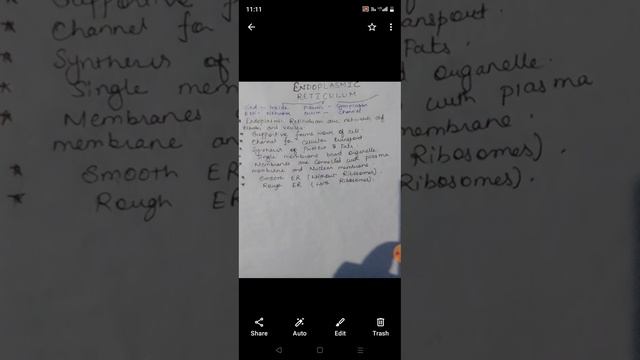 11:11
ENDOPLASMIC
RETICULUM
End - Inside Plasm - Cytoplasm
Eti - Network
* Endoplasmic Reticulum are network of
* Supportive frame work of cell
* Channel for cellular transport
* Synthesis of Proteins & Fats
* Single membrane organelle
* Membranes are connected with plasma
membrane and Nuclear membrane
* Smooth ER (Without Ribosomes).
* Rough ER (with Ribosomes).
Channel for
ansport.
* Synthesis of
Fats.
* Single mem
d organelle.
* Membranes
with plasma
membrane an
membrane.
* Smooth ER
Ribosomes).
* Rough ER
Ribosomes).
Share
Auto
Edit
Trash